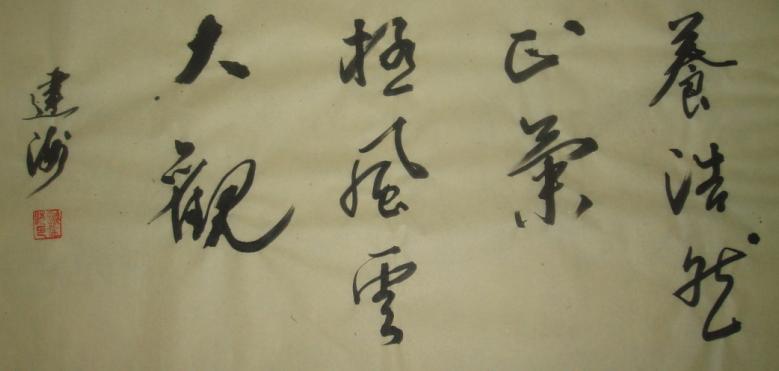 養浩然
正氣
極風雲
大觀
建海